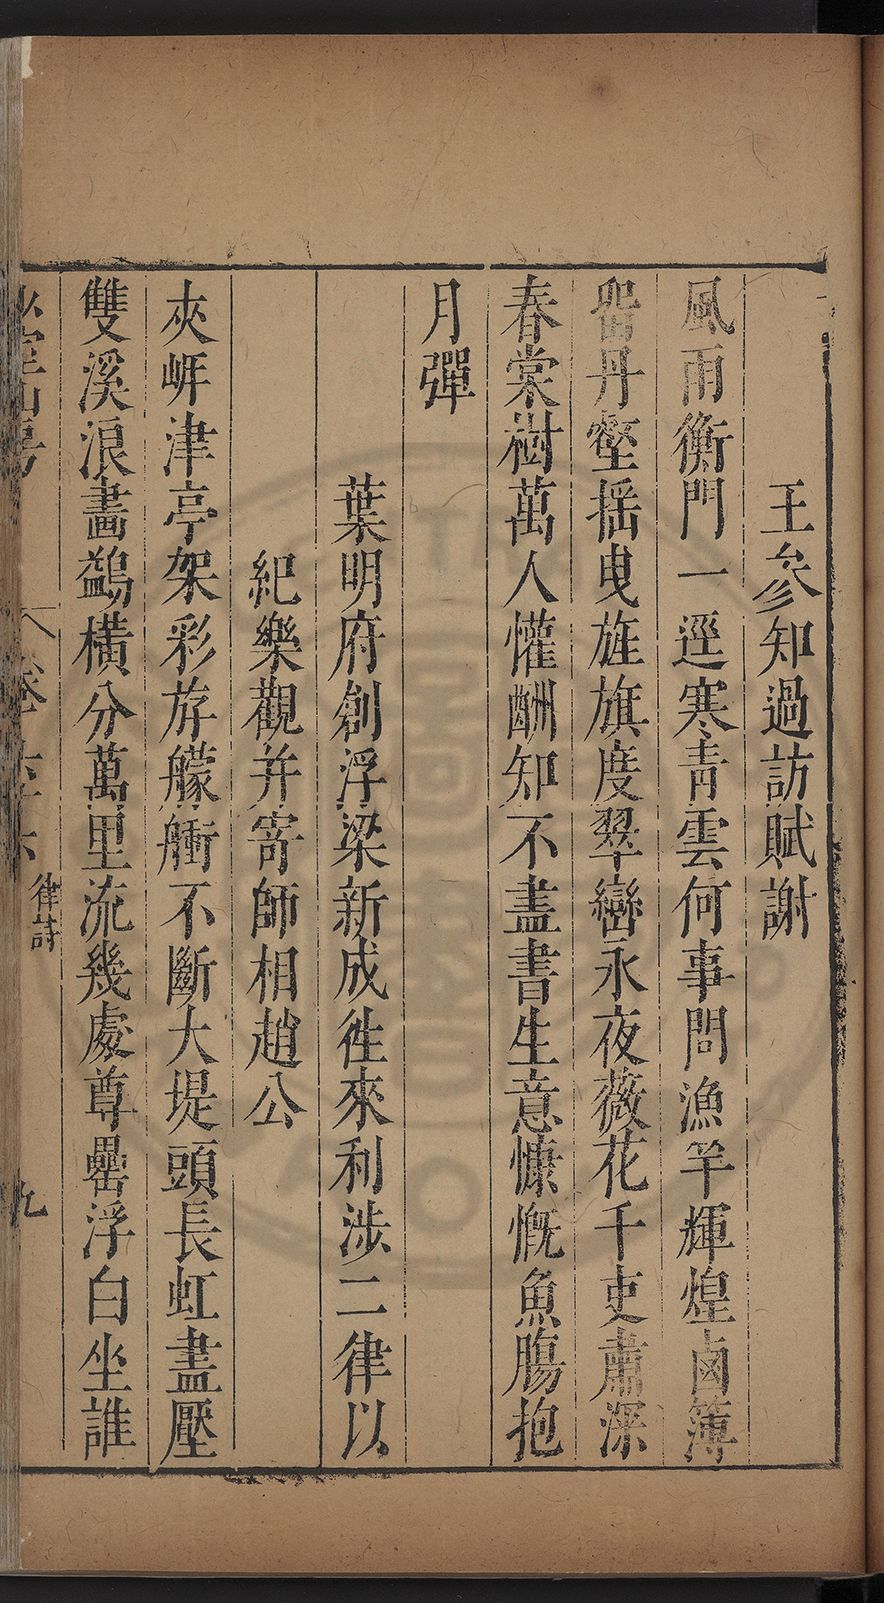 王參知過訪賦謝
風雨衡門一逕寒青雲何事問漁竿輝煌鹵簿
畱丹壑摇曳旌旗度翠巒永夜薇花千吏肅深
春棠樹萬人懽酬知不盡書生意慷慨魚腸抱
月彈
葉明府創浮梁新成徃來利涉二律以
紀樂觀并寄師相趙公
夾岸津亭架彩斿艨艟不斷大堤頭長虹盡壓
雙溪浪畵鷁橫分萬里流幾處尊罍浮白坐誰
山房
律詩
九